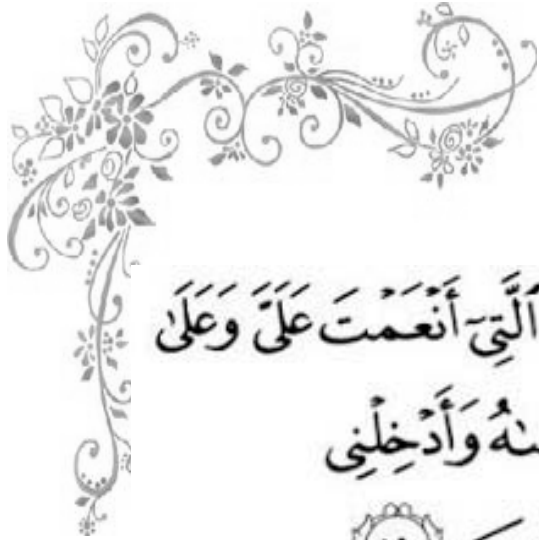 ٱلَّتِىٓ أَنْعَمْتَ عَلَىَّ وَعَلَىٰ
وَأَدْخِلْنِى